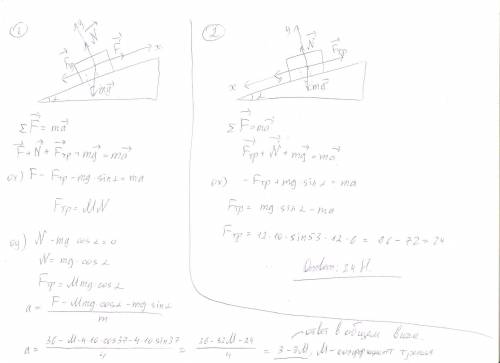 1
y
x
N
F
Fтр
mg
α
ΣF = ma
F + N + Fтр + mg = ma
ox) F - Fтр - mg·sinα = ma
Fтр = MN
oy) N - mg·cosα = 0
N = mg·cosα
Fтр = Mmg cosα
a = F - Mmg·cosα - mg sinα / m
a = 36 - M·4·10·cos37 - 4·10 sin37 / 4 = 36 - 32M - 24 / 4 = 3 - 8M, M - коэффициент трения
ответ в общем виде
2
y
x
N
Fтр
α
ΣF = ma
Fтр + N + mg = ma
ox) - Fтр + mg sinα = ma
Fтр = mg sinα - ma
Fтр = 12·10·sin53 - 12·6 = 96 - 72 = 24
Ответ: 24 Н.